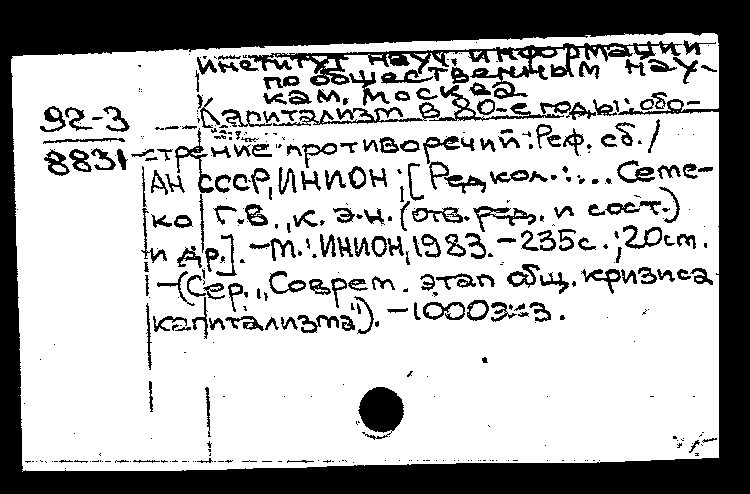 институт науч. информации
по общественным нау-
кам. Москва
Капитализм в 80-е годы: обо-
92-3
8831
стрение противоречий: Реф. сб. /
АН СССР, ИНИОН; [Редкол.: ... Семе-
ко Г.В., к. э. н. (отв. ред. и сост.)
и др.]. - М.: ИНИОН, 1983. - 235с.; 20см.
- (Сер. "Соврем. этап общ. кризиса
капитализма"). - 1000экз.